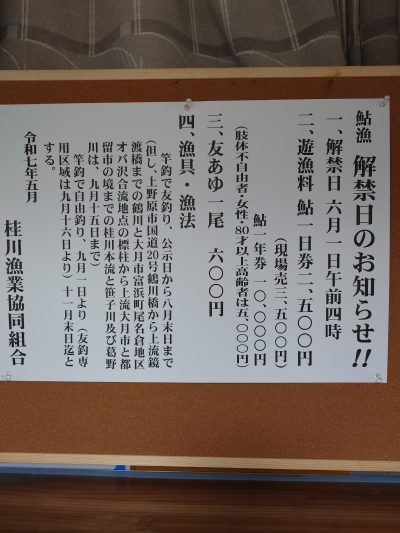 鮎漁 解禁日のお知らせ!!
一、解禁日 六月一日午前四時
二、遊漁料 鮎一日券二、五〇〇円
(現場売三、五〇〇円)
鮎一年券 一〇、〇〇〇円
(肢体不自由者・女性・80才以上高齢者は五、〇〇〇円)
三、友あゆ一尾 六〇〇円
四、漁具・漁法
竿釣で友釣り、公示日から八月末日まで
(但し、上野原市国道20号鶴川橋から上流鏡
渡橋までの鶴川と大月市富浜町尾名倉地区
オバ沢合流地点の標柱から上流大月市と都
留市の境までの桂川本流と笹子川及び葛野
川は、九月十五日まで)
竿釣で自由釣り、九月一日より(友釣専
用区域は九月十六日より)十一月末日迄と
する。
令和七年五月
桂川漁業協同組合